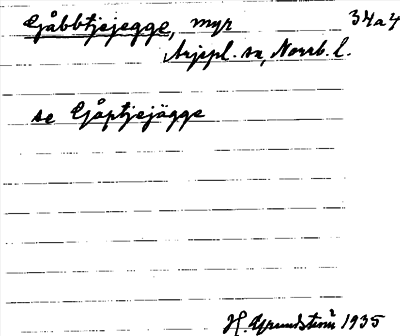 Gåbbtjejegge, myr 34a4
Arjepl. sn, Norrb. l.
se Gåptjejägge
H. Grundström 1935